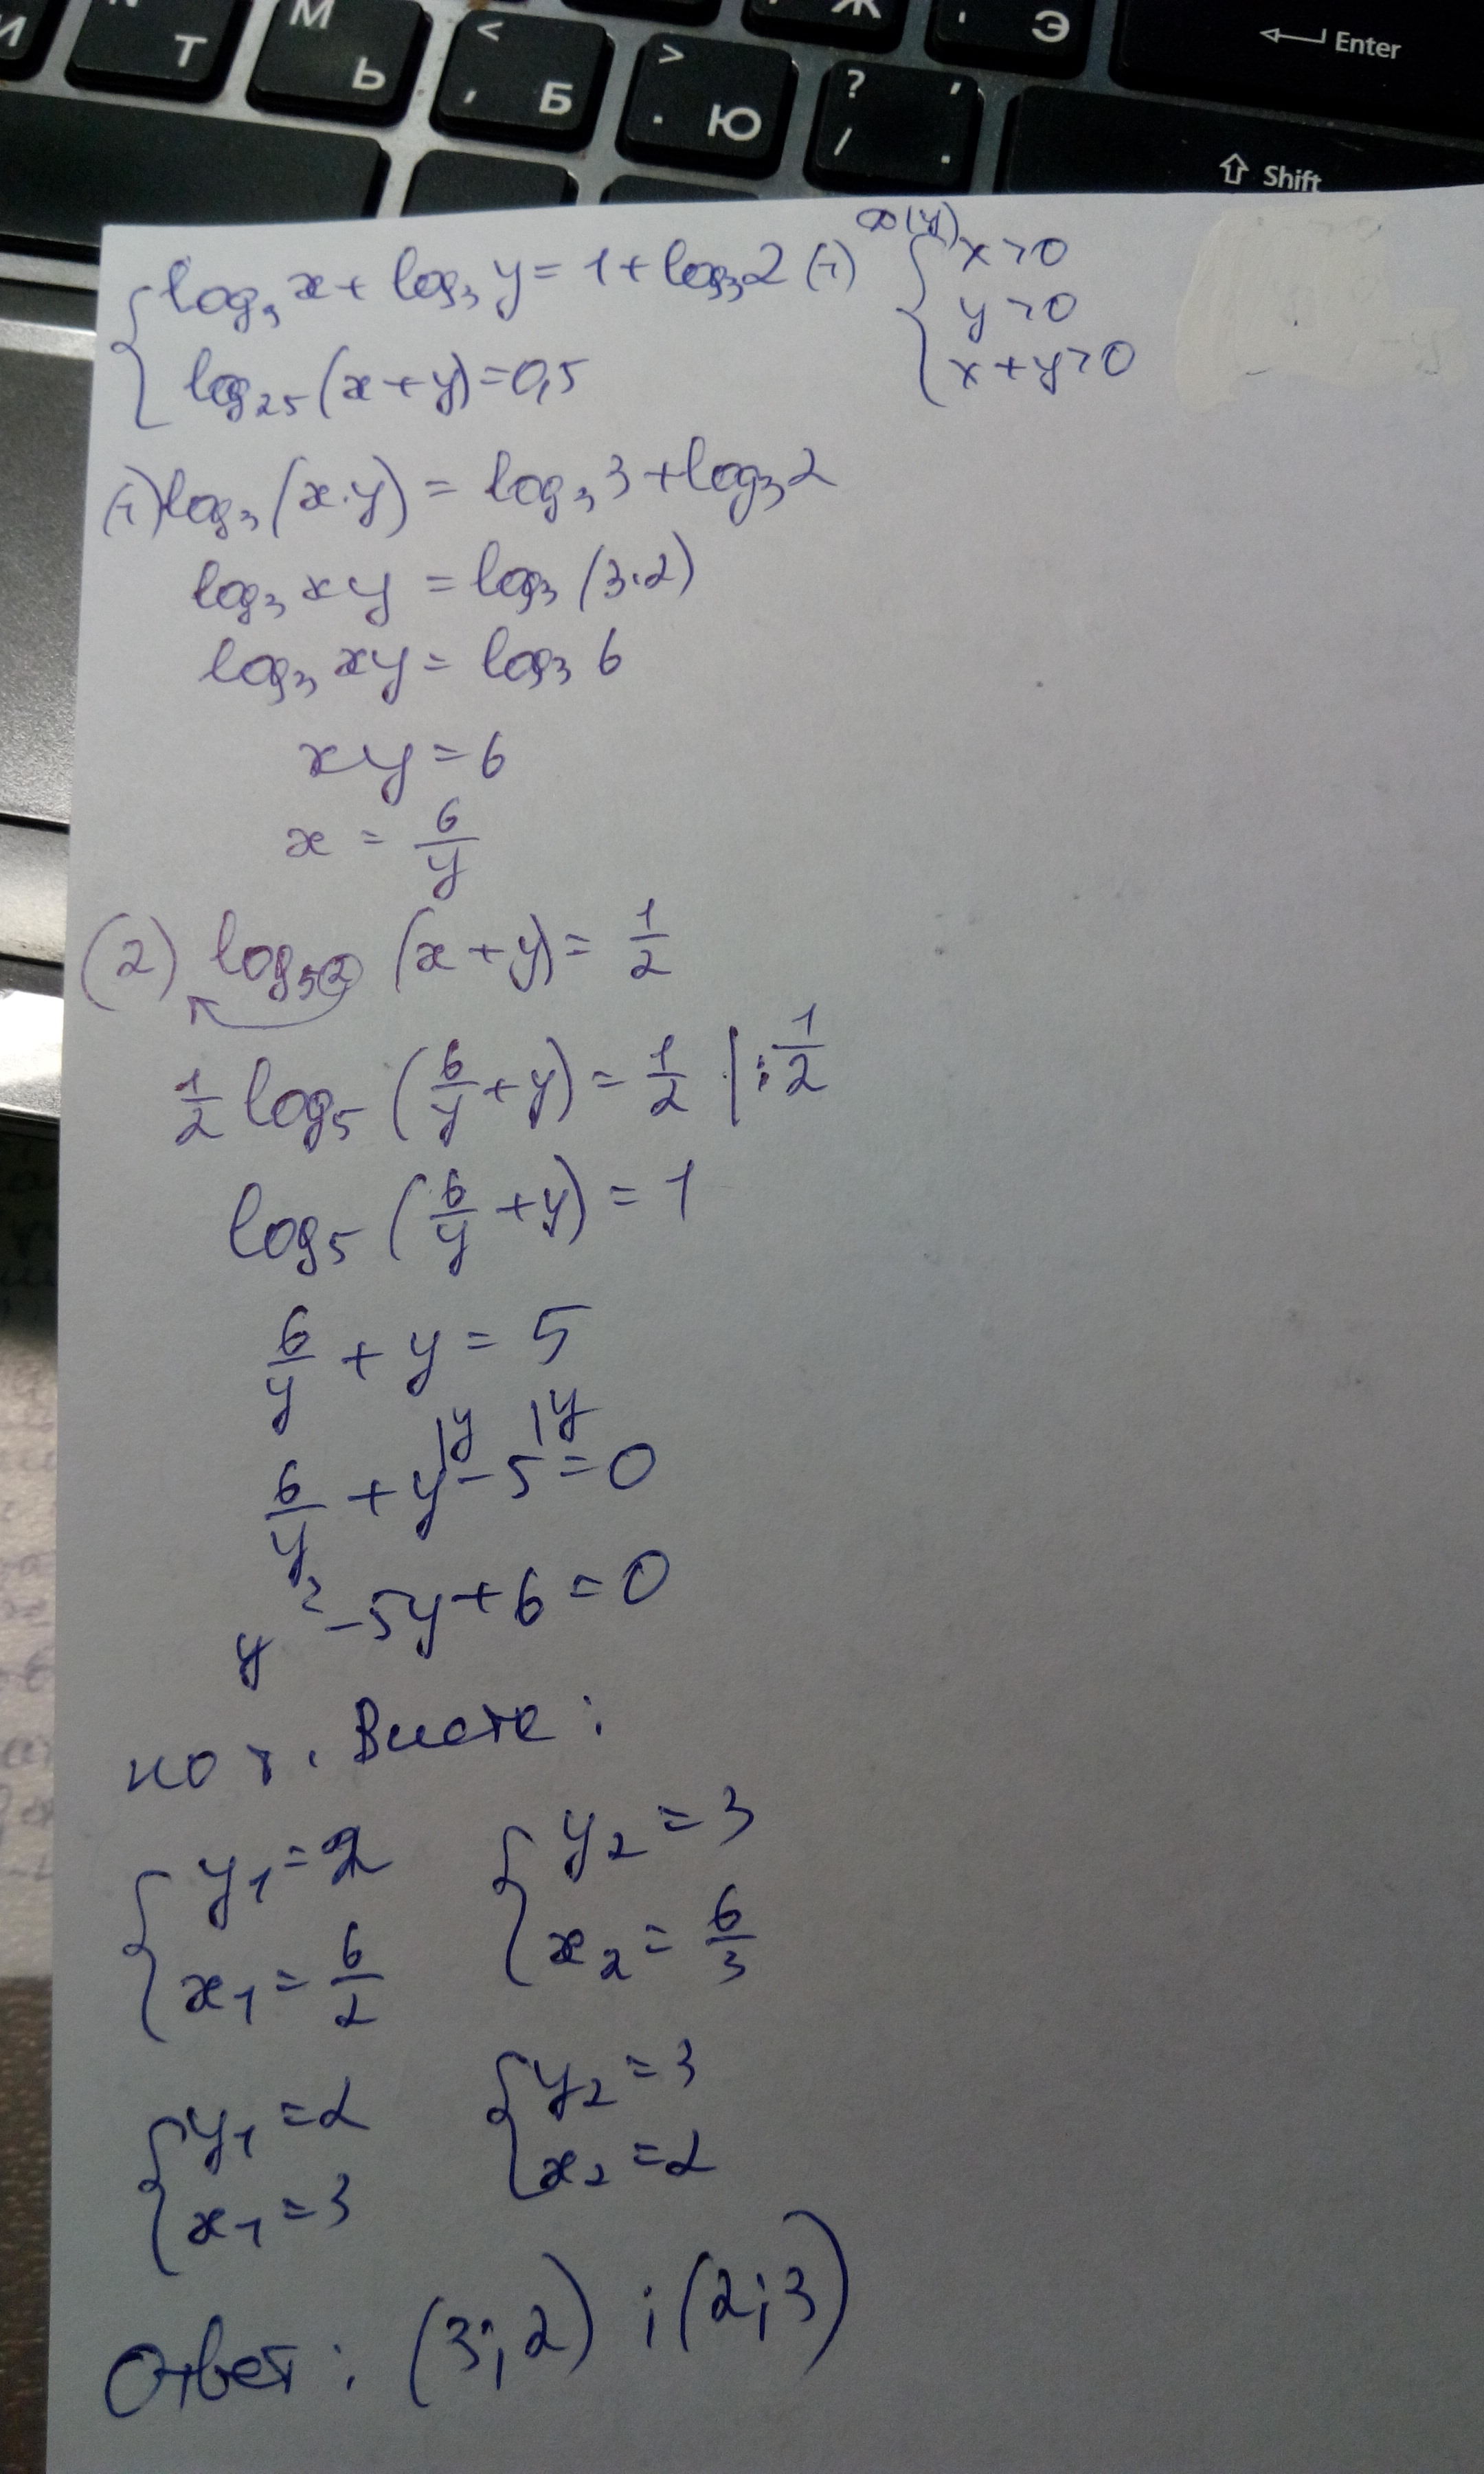 И
N Т
М Ь
< , Б
> . Ю
? , / .
Ж
' Э
Enter
Shift
log₃ x + log₃ y = 1 + log₃ 2 (1)
log₂₅ (x + y) = 0,5
x > 0
y > 0
x + y > 0
(1) log₃ (x · y) = log₃ 3 + log₃ 2
log₃ xy = log₃ (3 · 2)
log₃ xy = log₃ 6
xy = 6
x = 6/y
(2) log₅② (x + y) = 1/2
1/2 log₅ (6/y + y) = 1/2 | : 1/2
log₅ (6/y + y) = 1
6/y + y = 5
6/y + y |y - 5 |y = 0
y² - 5y + 6 = 0
по т. Виета :
y₁ = 2 y₂ = 3
x₁ = 6/2 x₂ = 6/3
y₁ = 2 y₂ = 3
x₁ = 3 x₂ = 2
Ответ : (3; 2) ; (2; 3)